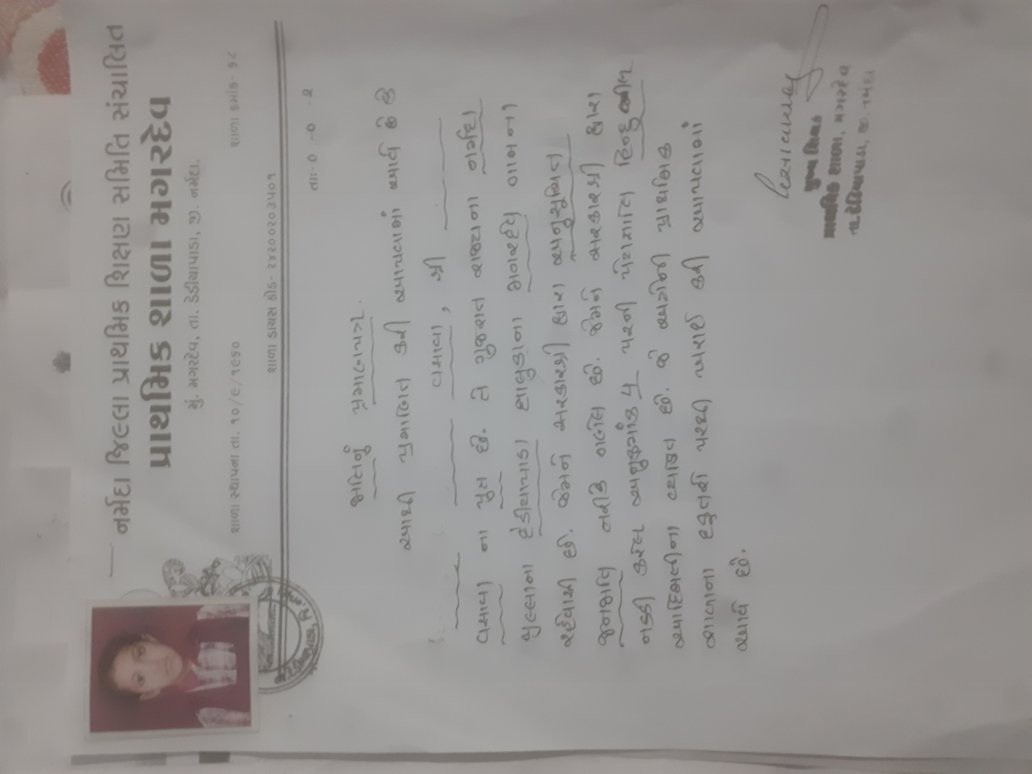 નર્મદા જિલ્લા પ્રાથમિક શિક્ષણ સમિતિ સંચાલિત
પ્રાથમિક શાળા મગરદેવ
મું. મગરદેવ, તા. ડેડીયાપાડા, જી. નર્મદા.
શાળા સ્થાપના તા. ૧૦/૬/૧૯૬૦ શાળા ક્રમાંક- ૬૮
શાળા ડાયસ કોડ- ૨૪૨૦૦૨૦૩૫૦૧
તા:-
જાતિનું પ્રમાણપત્ર.
આથી પ્રમાણિત કરી આપવામાં આવે છે કે
વસાવા, શ્રી
વસાવા ના પુત્ર છે. તે ગુજરાત રાજ્યના નર્મદા
જીલ્લાના ડેડીયાપાડા તાલુકાના મગરદેવ ગામના
રહેવાશી છે. જેમને સરકારશ્રી દ્વારા અનુસૂચિત
જનજાતિ તરીકે ગણેલ છે. જેમને સરકારશ્રી દ્વારા
નક્કી કરેલ અનુક્રમાંક પરની પેટાજાતિ હિન્દુ ભીલ
આદિજાતિના વ્યક્તિ છે. જે અંગેની પ્રાથમિક
શાળાના દફતરો પરથી ખરાઈ કરી આપવામાં
આવે છે.
મુખ્ય શિક્ષક
પ્રાથમિક શાળા, મગરદેવ
તા.ડેડિયાપાડા, જી.નર્મદા